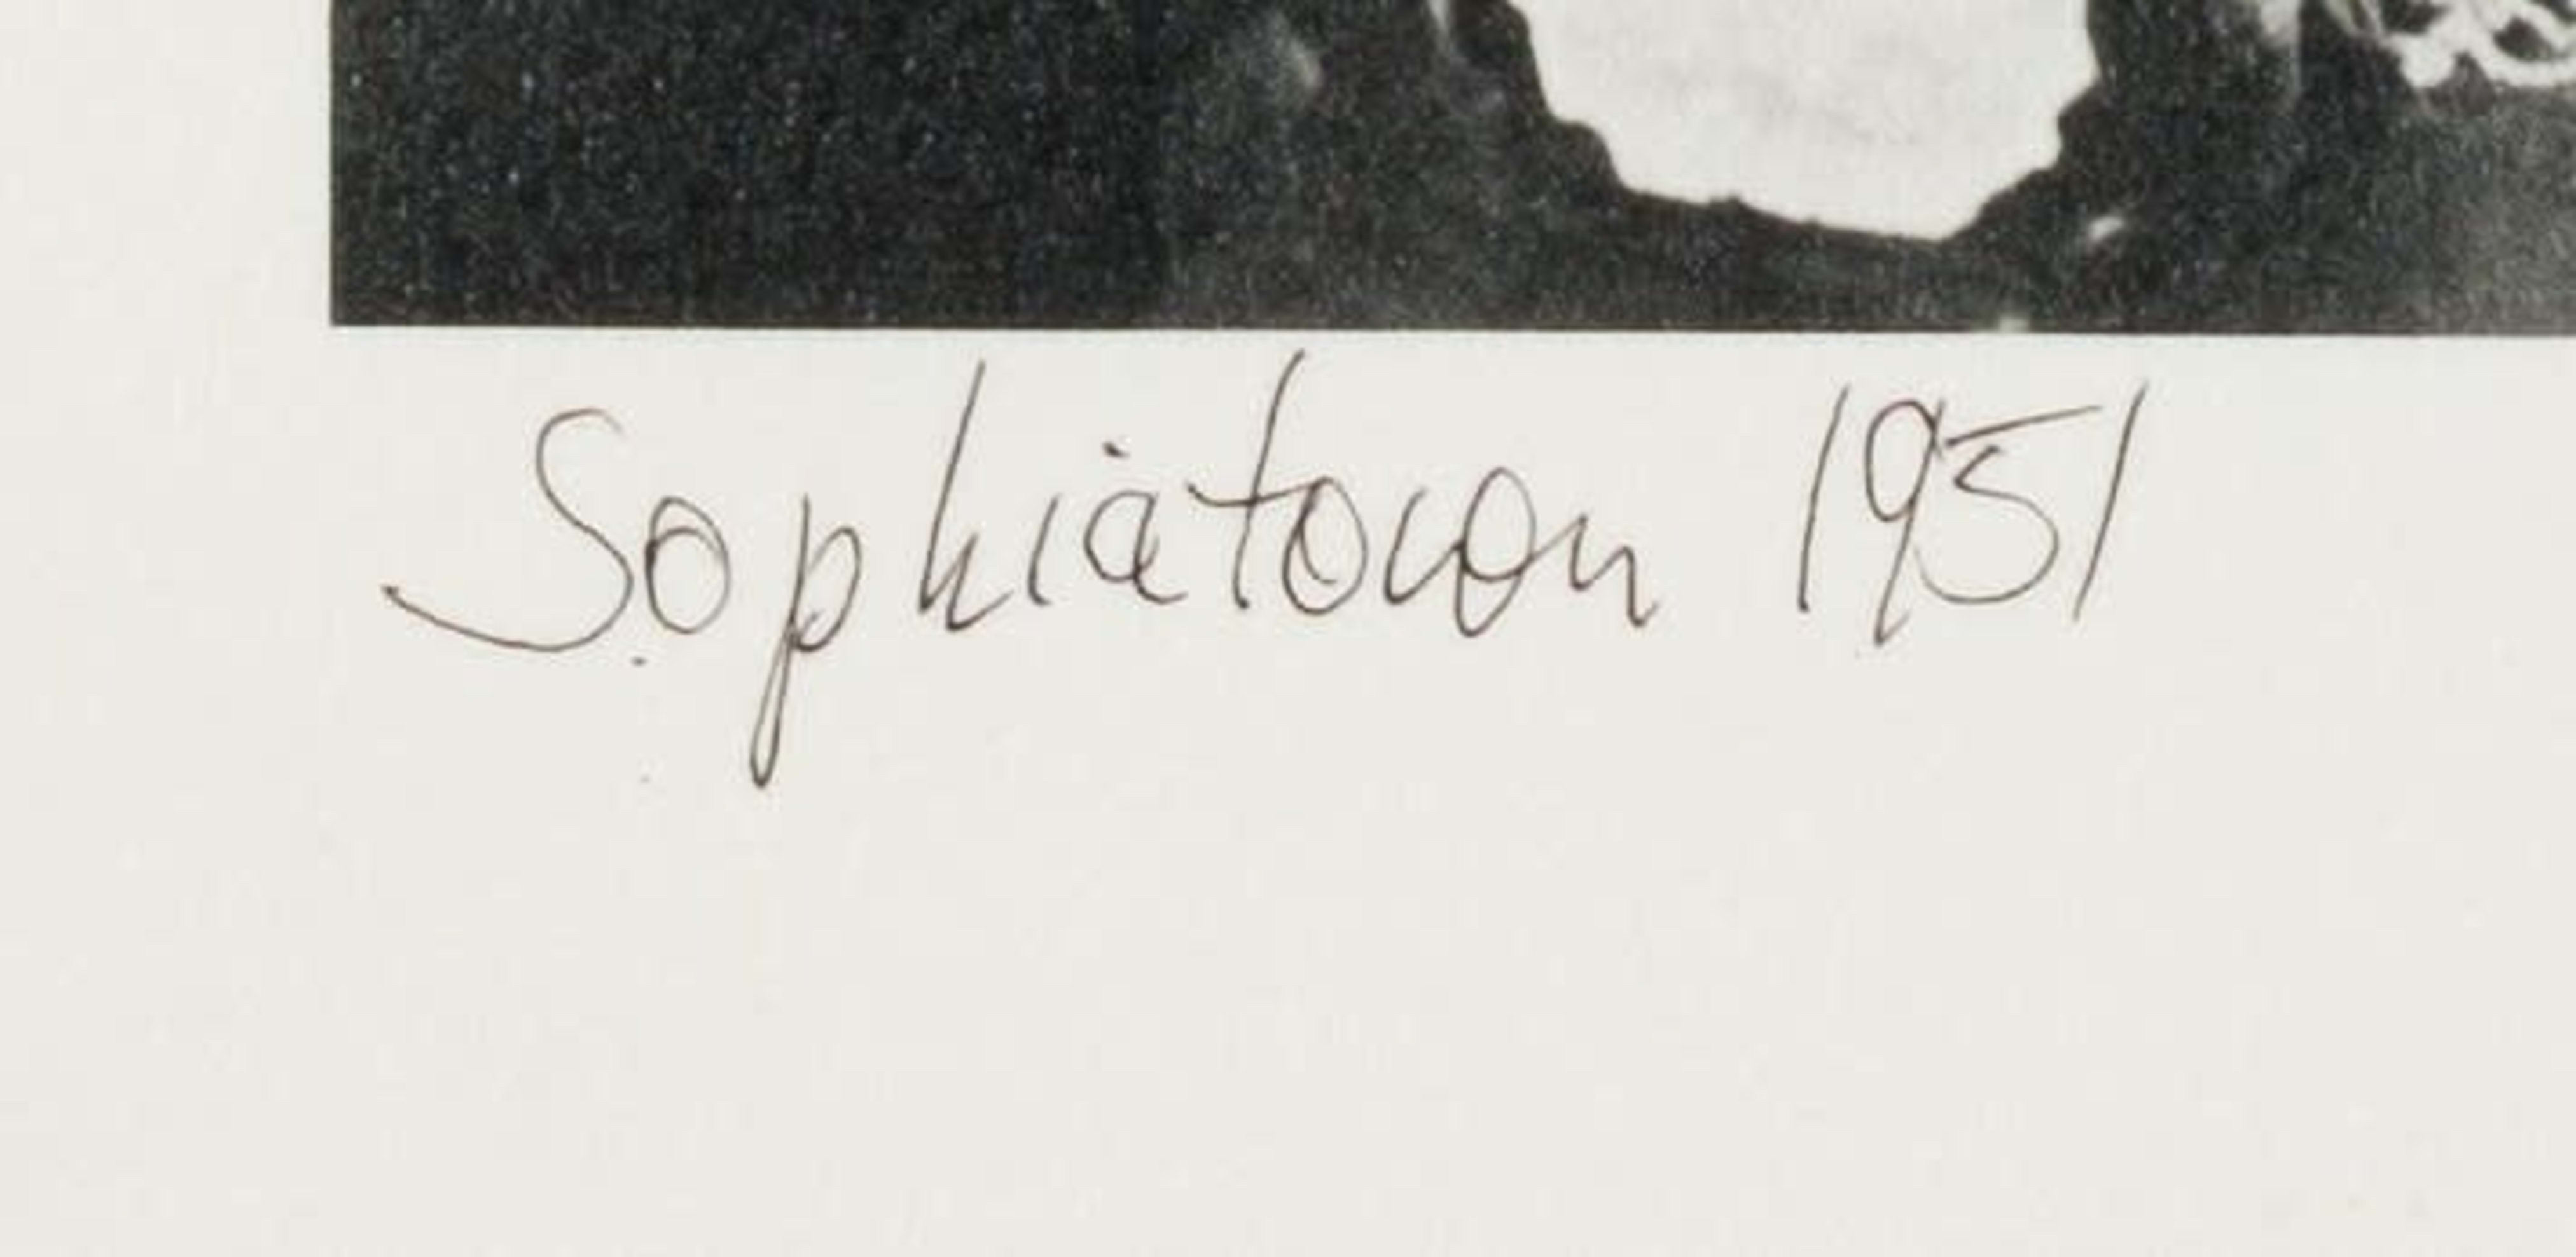 Sophiatown 1951